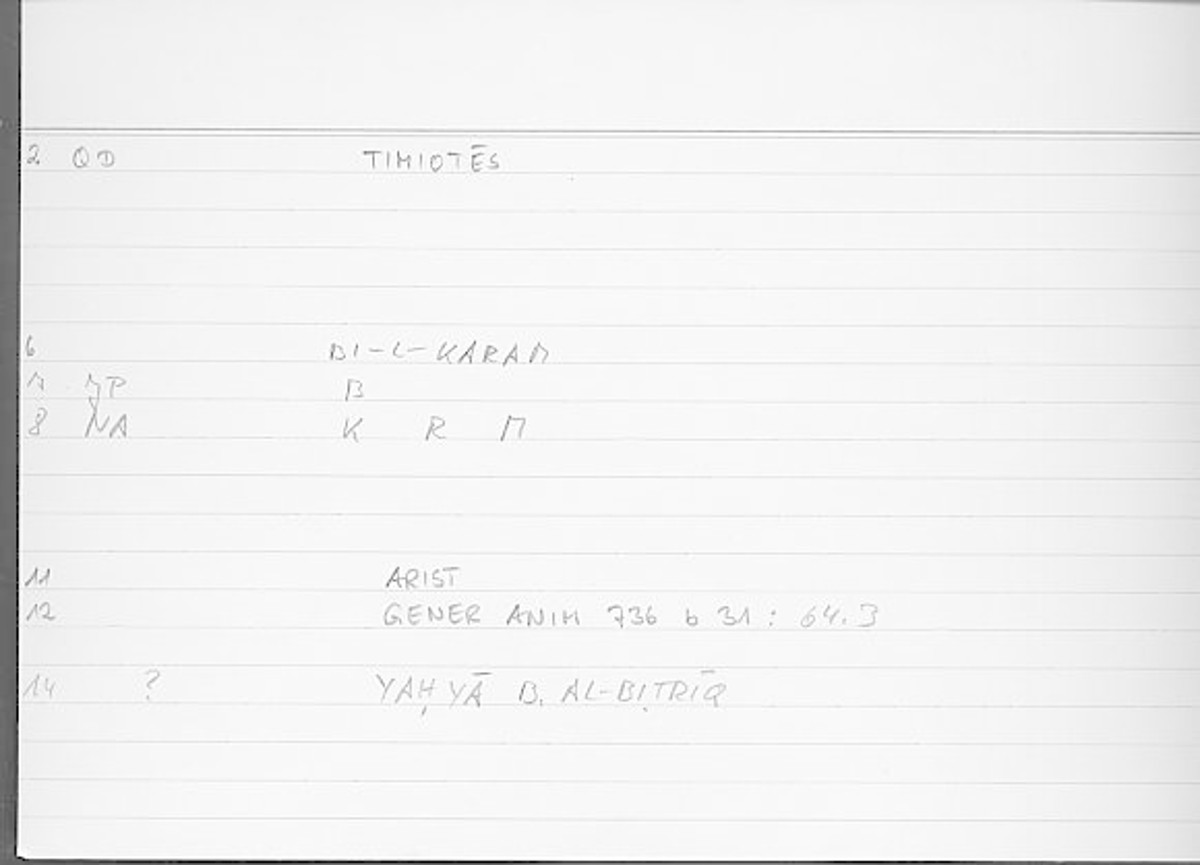 2 QD TIMIOTĒS
6 BI-L-KARAM
7 JP B
8 NA K R M
11 ARIST
12 GENER ANIM 736 b 31 : 64.3
14 ? YAḤYĀ B. AL-BIṬRĪQ